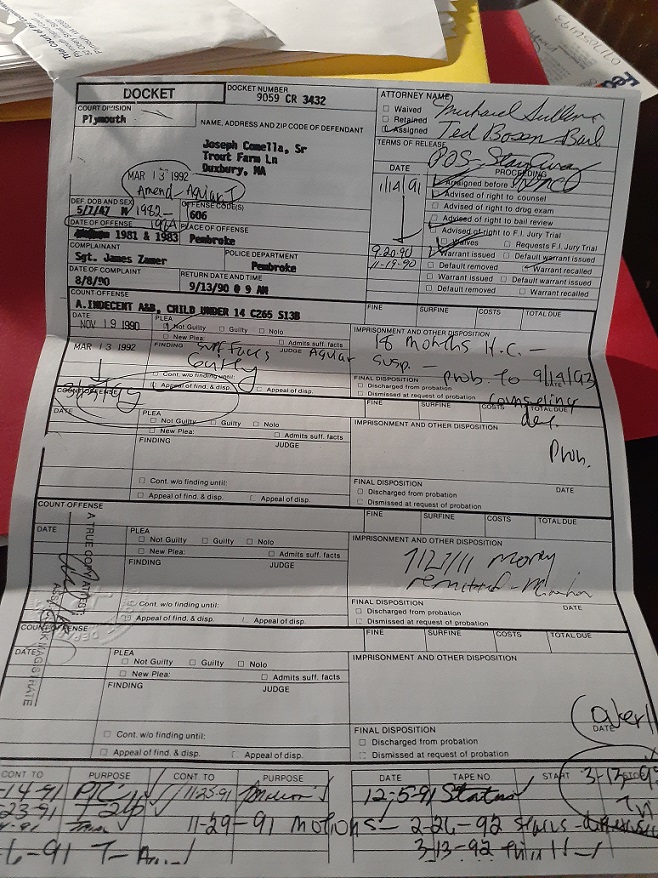 Trial Court of the
DOCKET
DOCKET NUMBER
9059 CR 3432
ATTORNEY NAME
Waived
Retained
Assigned
Michael Sullivan
Ted Bosen Bail
COURT DIVISION
Plymouth
NAME, ADDRESS AND ZIP CODE OF DEFENDANT
Joseph Comella, Sr
Trout Farm Ln
Duxbury, MA
TERMS OF RELEASE
POS - Stay Away
MAR 13 1992
Amend - Aguiar J
DATE
PROCEEDING
1/14/91
Arraigned before
Advised of right to counsel
Advised of right to drug exam
Advised of right to bail review
Advised of right to F.I. Jury Trial
Waives
Requests F.I. Jury Trial
DEF. DOB AND SEX
5/7/47 M
OFFENSE CODE(S)
606
1982 -
1984
DATE OF OFFENSE
1981 & 1983
PLACE OF OFFENSE
Pembroke
COMPLAINANT
Sgt. James Zamer
POLICE DEPARTMENT
Pembroke
9-20-90
Warrant issued
Default warrant issued
11-19-90
Default removed
Warrant recalled
Warrant issued
Default warrant issued
Default removed
Warrant recalled
DATE OF COMPLAINT
8/8/90
RETURN DATE AND TIME
9/13/90 @ 9 AM
COUNT-OFFENSE
A. INDECENT A&B, CHILD UNDER 14 C265 S13B
FINE
SURFINE
COSTS
TOTAL DUE
DATE
NOV 19 1990
PLEA
Not Guilty
Guilty
Nolo
New Plea:
Admits suff. facts
IMPRISONMENT AND OTHER DISPOSITION
18 months H.C. -
MAR 13 1992
FINDING
Suff Facts
JUDGE
Aguiar
Susp. -
Guilty
Prob. to 9/14/93
Cont. w/o finding until:
Appeal of find. & disp.
Appeal of disp.
FINAL DISPOSITION
Discharged from probation
Dismissed at request of probation
DATE
counseling
COUNT-OFFENSE
FINE
SURFINE
COSTS
TOTAL DUE
DATE
PLEA
Not Guilty
Guilty
Nolo
New Plea:
Admits suff. facts
FINDING
JUDGE
IMPRISONMENT AND OTHER DISPOSITION
Prob.
Cont. w/o finding until:
Appeal of find. & disp.
Appeal of disp.
FINAL DISPOSITION
Discharged from probation
Dismissed at request of probation
DATE
COUNT OFFENSE
FINE
SURFINE
COSTS
TOTAL DUE
DATE
PLEA
Not Guilty
Guilty
Nolo
New Plea:
Admits suff. facts
FINDING
JUDGE
IMPRISONMENT AND OTHER DISPOSITION
7/27/11 money
remitted -
A TRUE COPY
Cont. w/o finding until:
Appeal of find. & disp.
Appeal of disp.
FINAL DISPOSITION
Discharged from probation
Dismissed at request of probation
DATE
COUNT-OFFENSE
FINE
SURFINE
COSTS
TOTAL DUE
DATE
PLEA
Not Guilty
Guilty
Nolo
New Plea:
Admits suff. facts
FINDING
JUDGE
IMPRISONMENT AND OTHER DISPOSITION
Cont. w/o finding until:
Appeal of find. & disp.
Appeal of disp.
FINAL DISPOSITION
Discharged from probation
Dismissed at request of probation
DATE
(over)
CONT TO
PURPOSE
CONT TO
PURPOSE
DATE
TAPE NO
START
-14-91 PTC
11-25-91
12-5-91 Status
3-13-92
-23-91
11-29-91 motions - 2-26-92 status -
-6-91
3-13-92